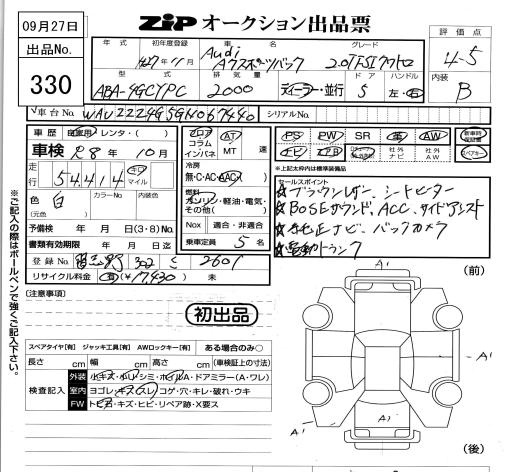 09月27日
ZIP オークション出品票
出品No.
330
評価点
4-5
内装
B
年式 初年度登録 車名 グレード
H27年11月 Audi A7スポーツバック 2.0TFSIクワトロ
型式 排気量 ドア ハンドル
ABA-4GCYPC 2000 ディーラー・並行 5 左・右
車台No. WAUZZZ4G5GN067440 シリアルNo.
車歴 自家用 レンタ・( )
車検 R8年10月
走行 54,414 キロ マイル
色 白 カラーNo. 内装色
(元色)
予備検 年 月 日(3・8)No.
書類有効期限 年 月 日迄
登録No. 習志野 302 さ 2601
リサイクル料金 済(¥17,430) 未
フロア コラム インパネ
AT MT 速
冷房
無・C・AC・AAC
燃料
ガソリン・軽油・電気・その他( )
Nox 適合・非適合
乗車定員 5 名
PS PW SR 革 AW 新車時保証書
ナビ TV 社外ナビ 社外AW スペアキー
※上記太枠内は標準装備品
セールスポイント
★ブラウンレザー、シートヒーター
★BOSEサウンド、ACC、サイドアシスト
★純正ナビ、バックカメラ
★電動トランク
[注意事項]
初出品
スペアタイヤ[有] ジャッキ工具[有] AWロックキー[有] ある場合のみ○
長さ cm 幅 cm 高さ cm (車検証上の寸法)
検査記入
外装 小キズ・ホソリ・シミ・ホイルA・ドアミラー(A・ワレ)
室内 ヨゴレ・キズ(スレ)コゲ・穴・キレ・破れ・ウキ
FW トビ石・キズ・ヒビ・リペア跡・X要ス
※ご記入の際はボールペンで強くご記入下さい。
(前)
A1
A1
A1
A1
(後)